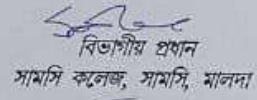 বিভাগীয় প্রধান
সামসি কলেজ, সামসি, মালদা